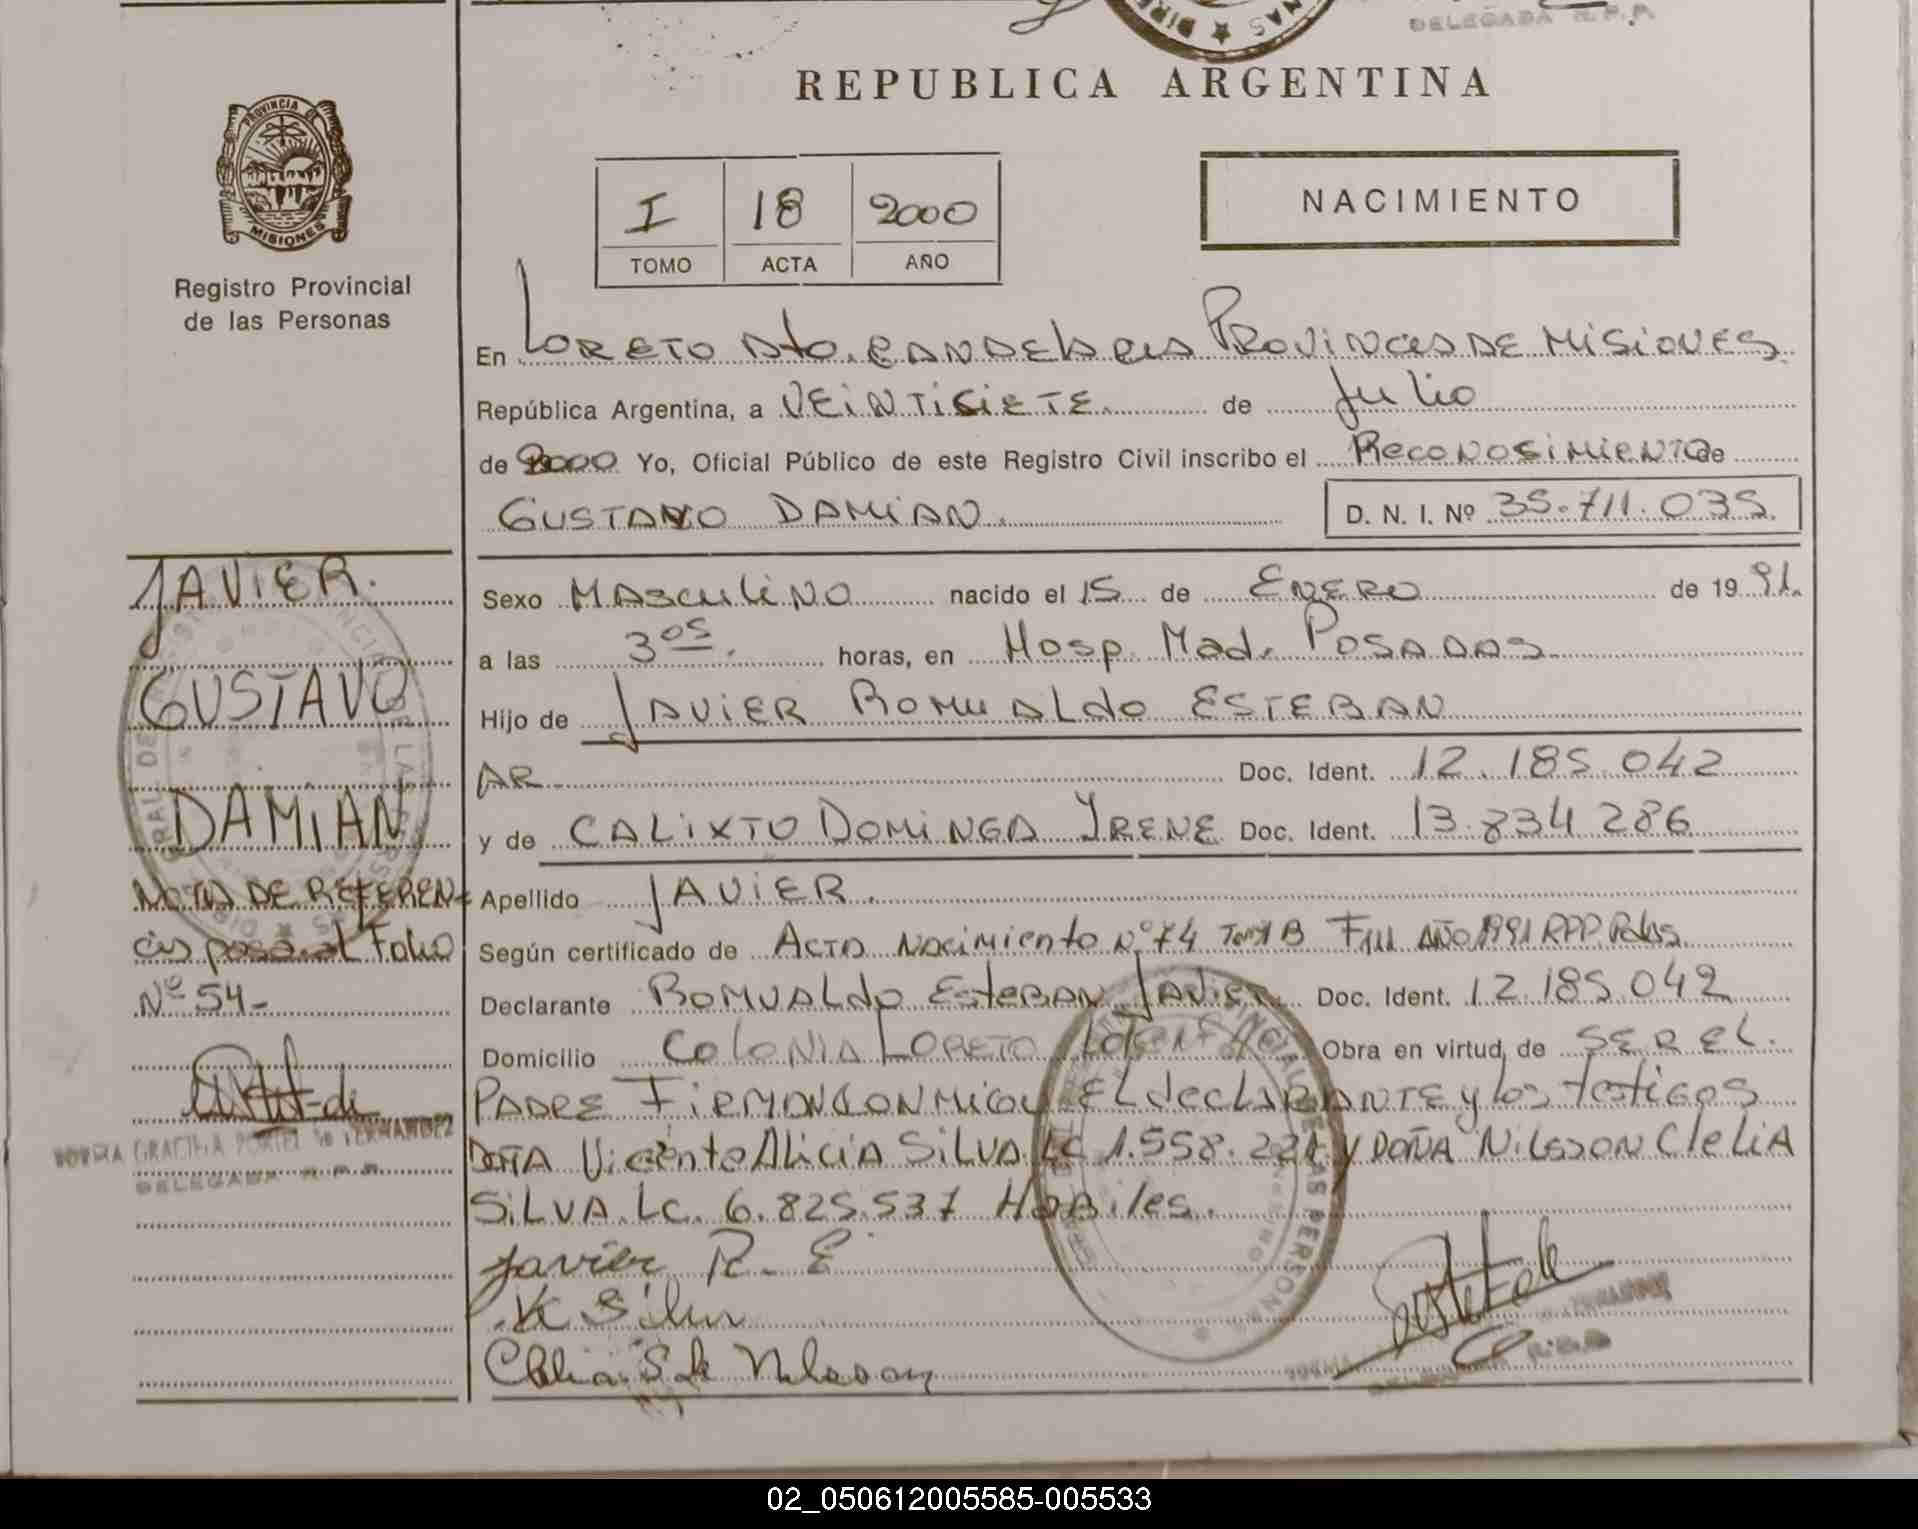 DELEGADA R.P.P.
REPUBLICA ARGENTINA
PROVINCIA DE
MISIONES
Registro Provincial
de las Personas
I 18 2000
TOMO ACTA AÑO
NACIMIENTO
En LORETO Dto. CANDELARIA PROVINCIA DE MISIONES
República Argentina, a VEINTISIETE de Julio
de 2000 Yo, Oficial Público de este Registro Civil inscribo el Reconosimiento de
GUSTAVO DAMIAN. D. N. I. Nº 35.711.035
JAVIER.
GUSTAVO
DAMIAN
NOTA DE REFEREN-
cia pasa al Folio
Nº 54-
NORMA GRACIELA PORTEL de FERNANDEZ
DELEGADA R.P.P.
Sexo MAsculiNO nacido el 15 de ENERO de 19 91.
a las 3 05. horas, en Hosp. Mad. POSADAS
Hijo de JAVIER ROMUALdo ESTEBAN
AR Doc. Ident. 12.185.042
y de CALIXTO DOMINGA YRENE Doc. Ident. 13.834.286
Apellido JAVIER.
Según certificado de ACTA Nacimiento Nº 74 Tomo 1 B F 111 AÑO 1991 RPP. Pdas.
Declarante ROMUALdo EsteBAN JAVIER Doc. Ident. 12.185.042
Domicilio COLONIA LORETO Obra en virtud de SER EL
PADRE FIRMAN CONMIGO EL declARANTE y los testigos
DOÑA Vicenta Alicia SILVA LC 1.558.221 y DOÑA NILSSON Clelia
SILVA LC. 6.825.537 HABiles.
Javier R. E
V Silva
Clelia S de Nilsson
02_050612005585-005533